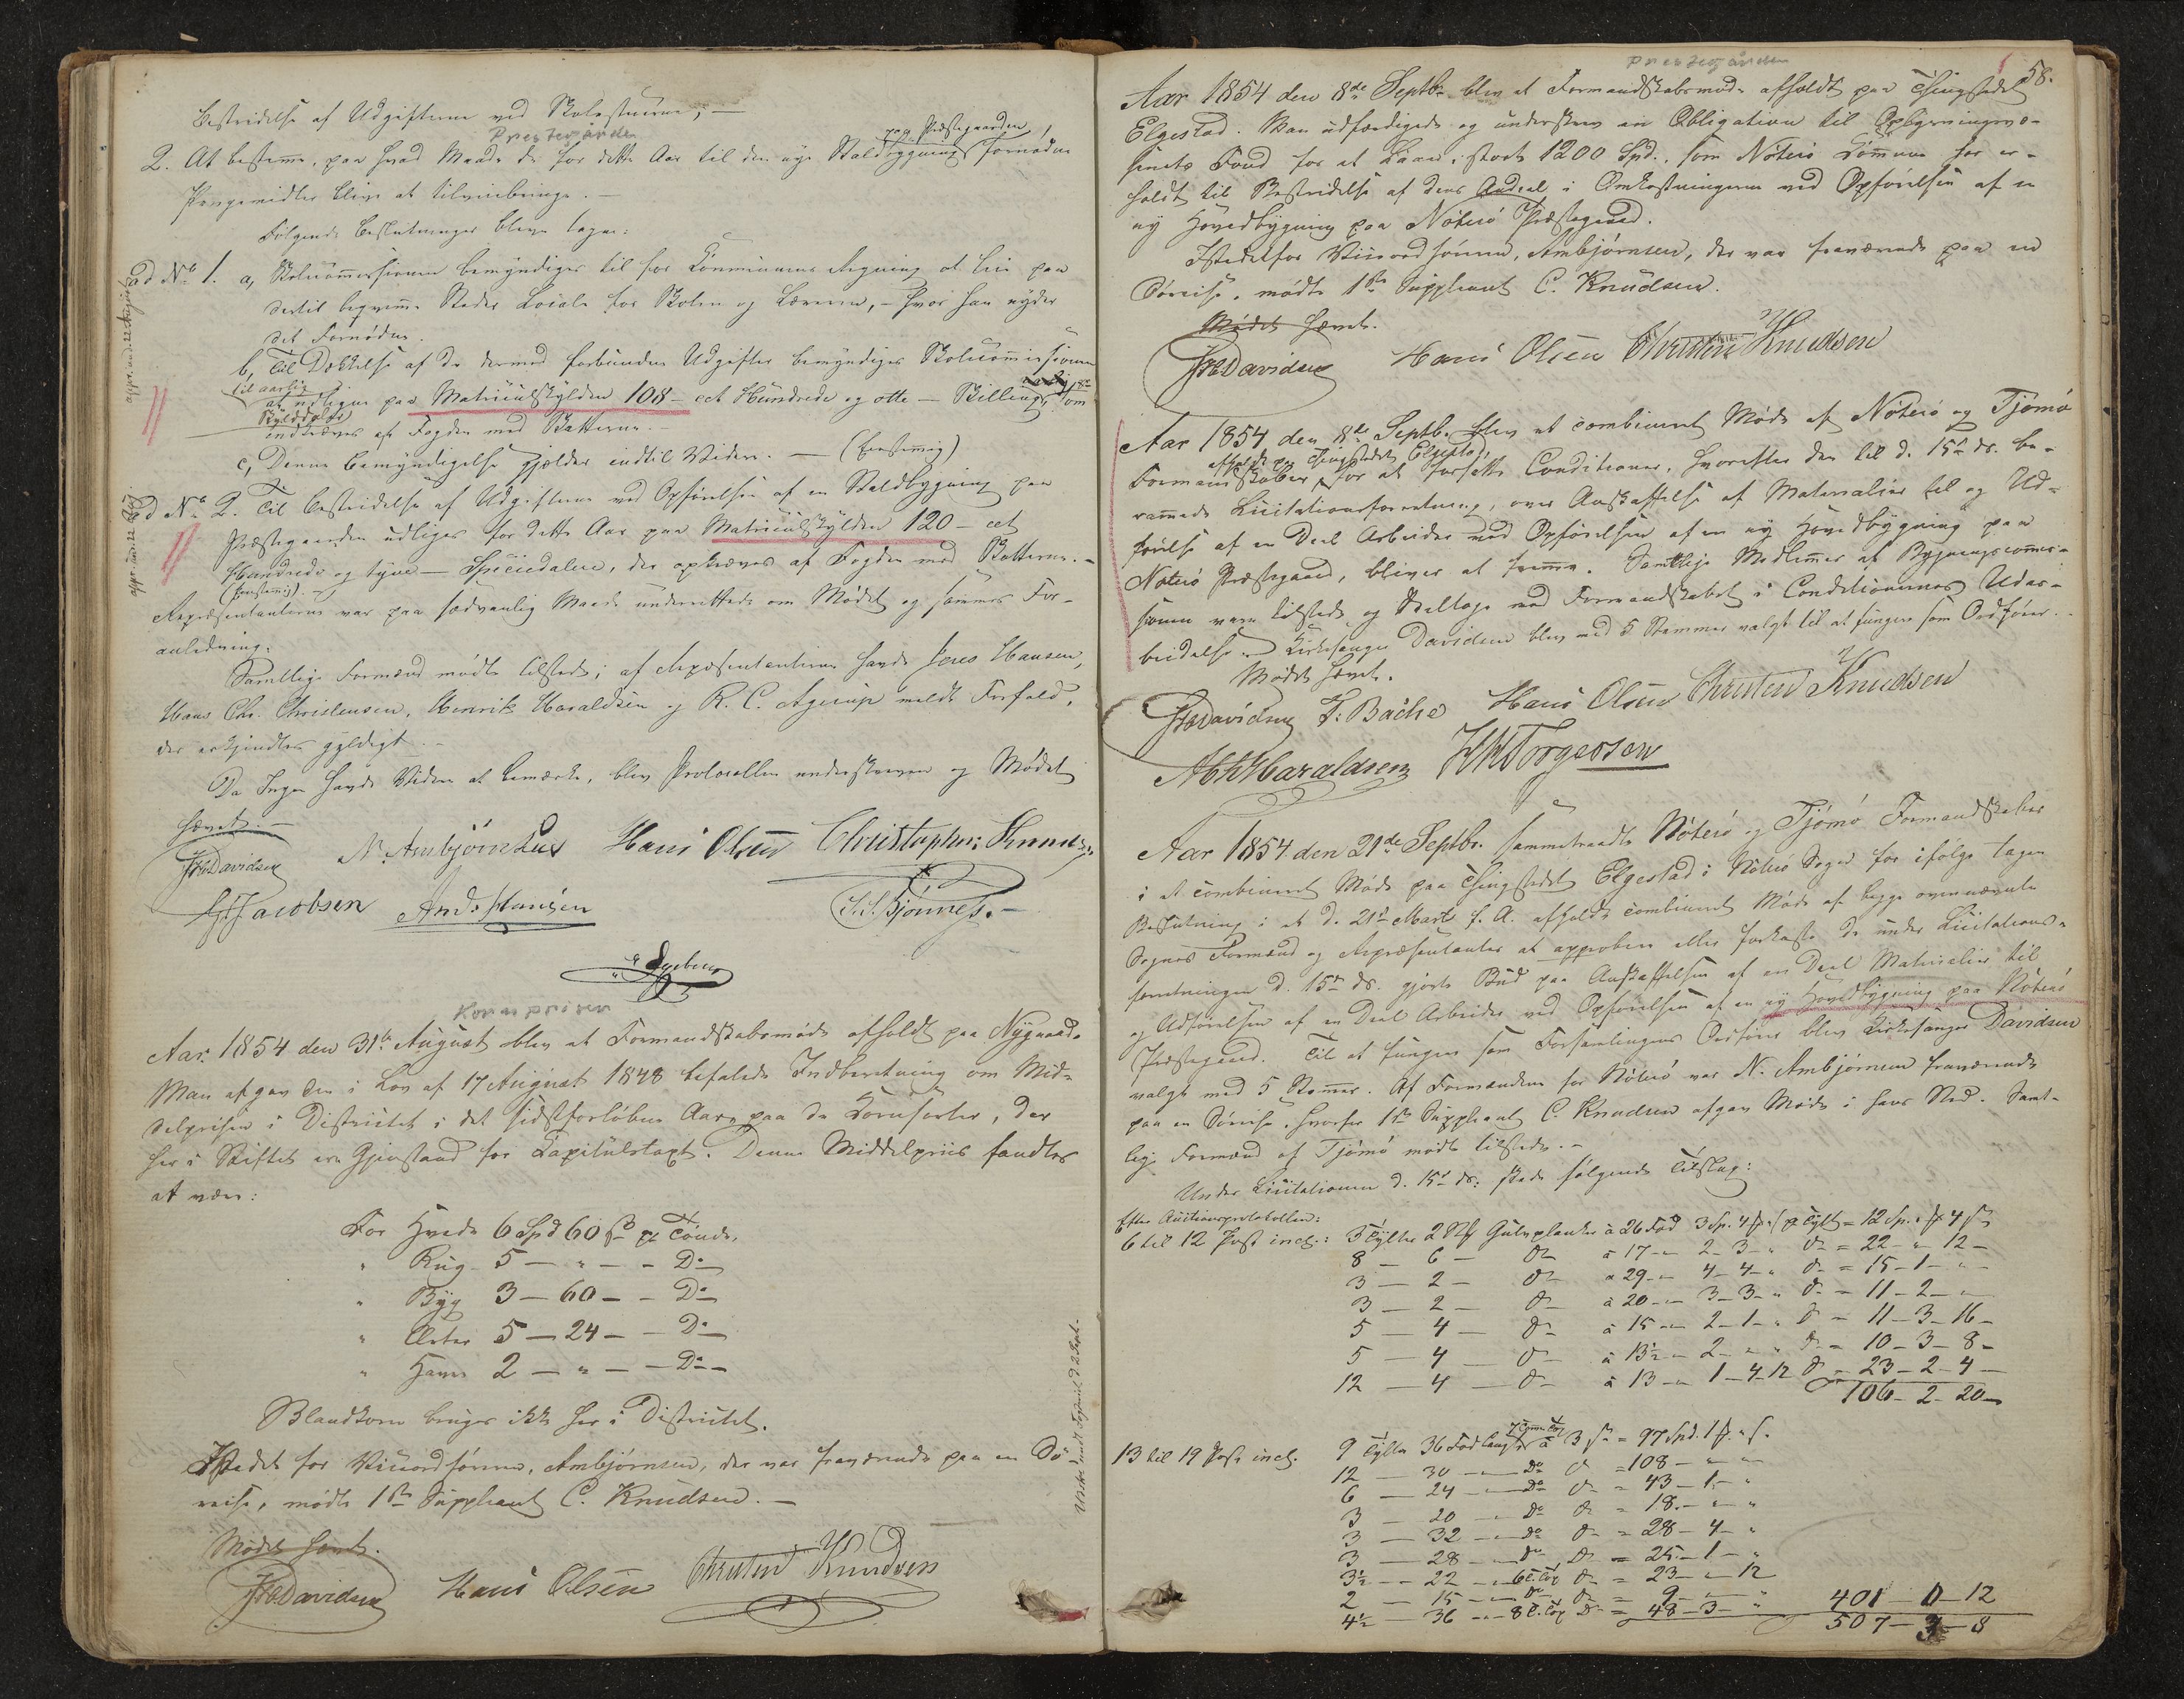 Bestridelse af Udgifterne ved Skolestuerne; —
Prestegården
paa Præstegaarden
2. At bestemme, paa hvad Maade de for dette Aar til den nye Staldbygning fornødne
Pengemidler blive at tilveiebringe. —
Følgende Beslutninger bleve tagne:
ad No 1. a, Skolecommissionen bemyndiges til for Communens Regning at leie paa
dertil beqvemme Steder Locale for Skolen og Læreren, – hvor han nyder
det Fornødne.
b, Til Dækkelse af de dermed forbundne Udgifter bemyndiges Skolecommissionen
til aarlig
at udligne paa Matriculskylden 108 – eet Hundrede og otte – Skilling, som
Skylddaler
indkræves af Fogden med Skatterne. —
c, Denne Bemyndigelse gjælder indtil Videre. — (Eenstemmig)
ad No 2. Til Bestridelse af Udgifterne ved Opførelsen af en Staldbygning paa
Præstegaarden udlignes for dette Aar paa Matriculskylden 120 – eet
Hundrede og tyve – Speciedalere, der opkræves af Fogden med Skatterne. –
(Eenstemmig). –
Repræsentanterne var paa sædvanlig Maade underrettede om Mødet og sammes For-
anledning.
Samtlige Formænd mødte tilstede; af Repræsentanterne havde Jens Hansen,
Hans Chr. Christensen, Henrik Haraldsen og R. C. Agerup meldt Forfald,
der erkjendtes gyldigt. —
Da Ingen havde Videre at bemærke, blev Protocollen underskreven og Mødet
hævet. —
Davidsen N. Ambjørnsen Hans Olsen Christopher
Jacobsen And. Hansen Bjønnes. –
Kornpriser
Aar 1854 den 31te August blev et Formandskabsmøde afholdt paa Nygaard.
Man afgav den i Lov af 17 August 1848 befalede Indberetning om Mid-
delprisen i Districtet i det sidstforløbne Aar, paa de Kornsorter, der
her i Stiftet ere Gjenstand for Kapitulstaxt. Denne Middelpriis fandtes
at være:
For Hvede 6 Spd 60 ß pr Tønde,
" Rug 5 — " — – Do —
" Byg 3 — 60 – – Do —
" Erter 5 — 24 – – Do —
" Havre 2 — " — – Do —
Blandkorn bruges ikke her i Districtet.
Istedet for Viceordføreren, Ambjørnsen, der var fraværende paa en Sø-
reise, mødte 1ste Suppleant C. Knudsen. —
Mødet hævet.
Davidsen Hans Olsen Christen Knudsen
58.
Prestegården
Aar 1854 den 8de Septbr. blev et Formandskabsmøde afholdt paa Thingstedet
Elgestad. Man udfærdigede og underskrev en Obligation til Oplysningsvæ-
senets Fond for et Laan, stort 1200 Spd., som Nøterø Commune har er-
holdt til Bestridelse af dens Andeel i Omkostningerne ved Opførelsen af en
ny Hovedbygning paa Nøterø Præstegaard.
Istedetfor Viceordføreren, Ambjørnsen, der var fraværende paa en
Søreise, mødte 1ste Suppleant C. Knudsen.
Mødet hævet.
Davidsen Hans Olsen Christen Knudsen
Aar 1854 den 8de Septb. blev et combineret Møde af Nøterø og Tjømø
afholdt paa Thingstedet Elgestad
Formandskaber, for at forfatte Conditioner, hvorefter den til d. 15de ds. be-
rammede Licitationsforretning, over Anskaffelse af Materialier til og Ud-
førelse af en Deel Arbeider ved Opførelsen af en ny Hovedbygning paa
Nøterø Præstegaard, bliver at fremme. Samtlige Medlemmer af Bygningscommis-
sionen vare tilstede og deeltoge med Formandskabet i Conditionernes Udar-
beidelse. Kirkesanger Davidsen blev med 5 Stemmer valgt til at fungere som Ordfører. –
Mødet hævet.
Davidsen F. Bache Hans Olsen Christen Knudsen
Haraldsen Torgersen
Aar 1854 den 21de Septbr. sammentraadte Nøterø og Tjømø Formandskaber
i et combineret Møde paa Thingstedet Elgestad i Nøterø Sogn for ifølge tagen
Beslutning i et d. 21de Marts f. A. afholdt combineret Møde af begge ovennævnte
Sognes Formænd og Repræsentanter at approbere eller forkaste de under Licitations-
forretningen d. 15de ds. gjorte Bud paa Anskaffelsen af en Deel Materialier til
og Udførelsen af en Deel Arbeider ved Opførelsen af en ny Hovedbygning paa Nøterø
Præstegaard. Til at fungere som Forsamlingens Ordfører blev Kirkesanger Davidsen
valgt med 5 Stemmer. Af Formændene for Nøterø var N. Ambjørnsen fraværende
paa en Søreise, hvorfor 1ste Suppleant C. Knudsen afgav Møde i hans Sted. Samt-
lige Formænd af Tjømø mødte tilstede. –
Under Licitationen d. 15de ds. skede følgende Tilslag:
Efter Auctionsprotokollen:
6 til 12 Post incl.: 3 Tylter 2 Gulvplanker à 26 Fod 3 Sp. 4 pr Tylt = 12 Sp. 4 ß
8 — 6 — Do à 17 – 2 – 3 – " Do = 22 – " 12 –
3 — 2 — Do à 29 – 4 – 4 – " Do = 15 – 1 – "
3 — 2 — Do à 20 – 3 – 3 – " Do = 11 – 2 – "
5 — 4 — Do à 15 – 2 – 1 – " Do = 11 – 3 – 16 –
5 — 4 — Do à 13½ – 2 – " Do = 10 – 3 – 8 –
12 — 4 — Do à 13 – 1 – 4 – 12 Do = 23 – 2 – 4 –
106 – 2 – 20 –
13 til 19 Post incl. 9 Tylter 36 Fod lange à 3 ß = 97 Spd. 1
12 — 30 — Do Do = 108 – "
6 — 24 — Do Do = 43 – 1 – "
3 — 20 — Do Do = 18 – " "
3 — 32 — Do Do = 28 – 4 – "
3 — 28 — Do Do = 25 – 1 – "
3½ — 22 — 6 T. Top Do = 23 – " 12
2 — 15 — Do Do = 9 – "
4½ — 36 — 8 T. Top Do = 48 – 3 – " 401 – 0 – 12
507 – 3 – 8